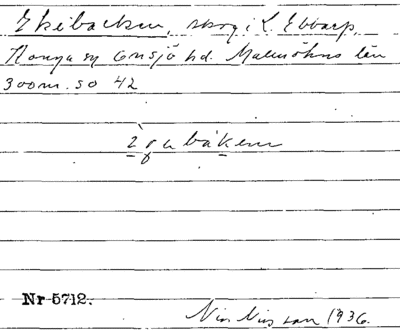 Ekebacken, skog i L. Ebbarp,
Konga sn Onsjö hd. Malmöhus län
300 m. so 42
Nr 5712.
Nils Nilsson 1936.